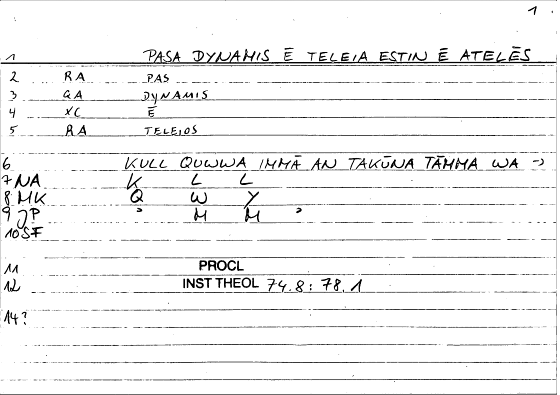 1
1 PASA DYNAMIS Ē TELEIA ESTIN Ē ATELĒS
2 RA PAS
3 QA DYNAMIS
4 XC Ē
5 RA TELEIOS
6 KULL QUWWA IMMĀ AN TAKŪNA TĀMMA WA →
7 NA K L L
8 MK Q W Y
9 JP ʾ M M ʾ
10 SF
11 PROCL
12 INST THEOL 74.8: 78.1
14?